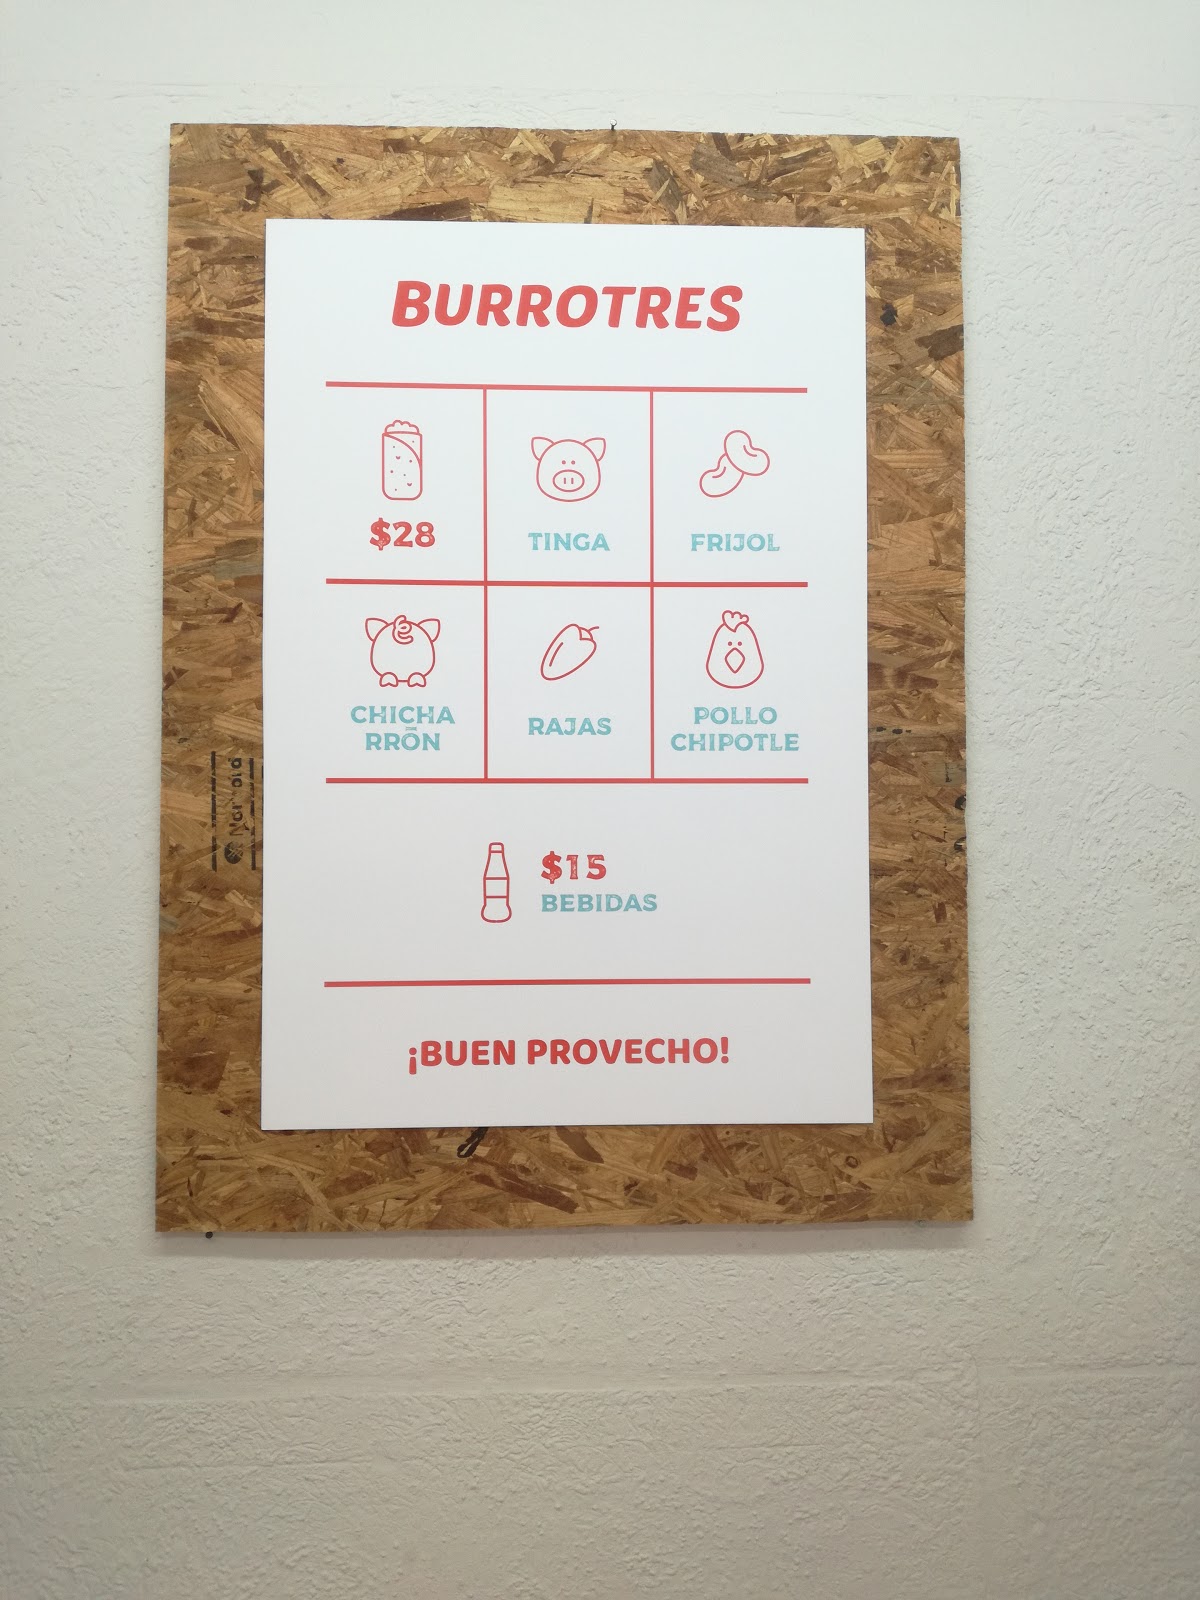 BURROTRES
$28
TINGA
FRIJOL
CHICHA
RRÓN
RAJAS
POLLO
CHIPOTLE
$15
BEBIDAS
¡BUEN PROVECHO!